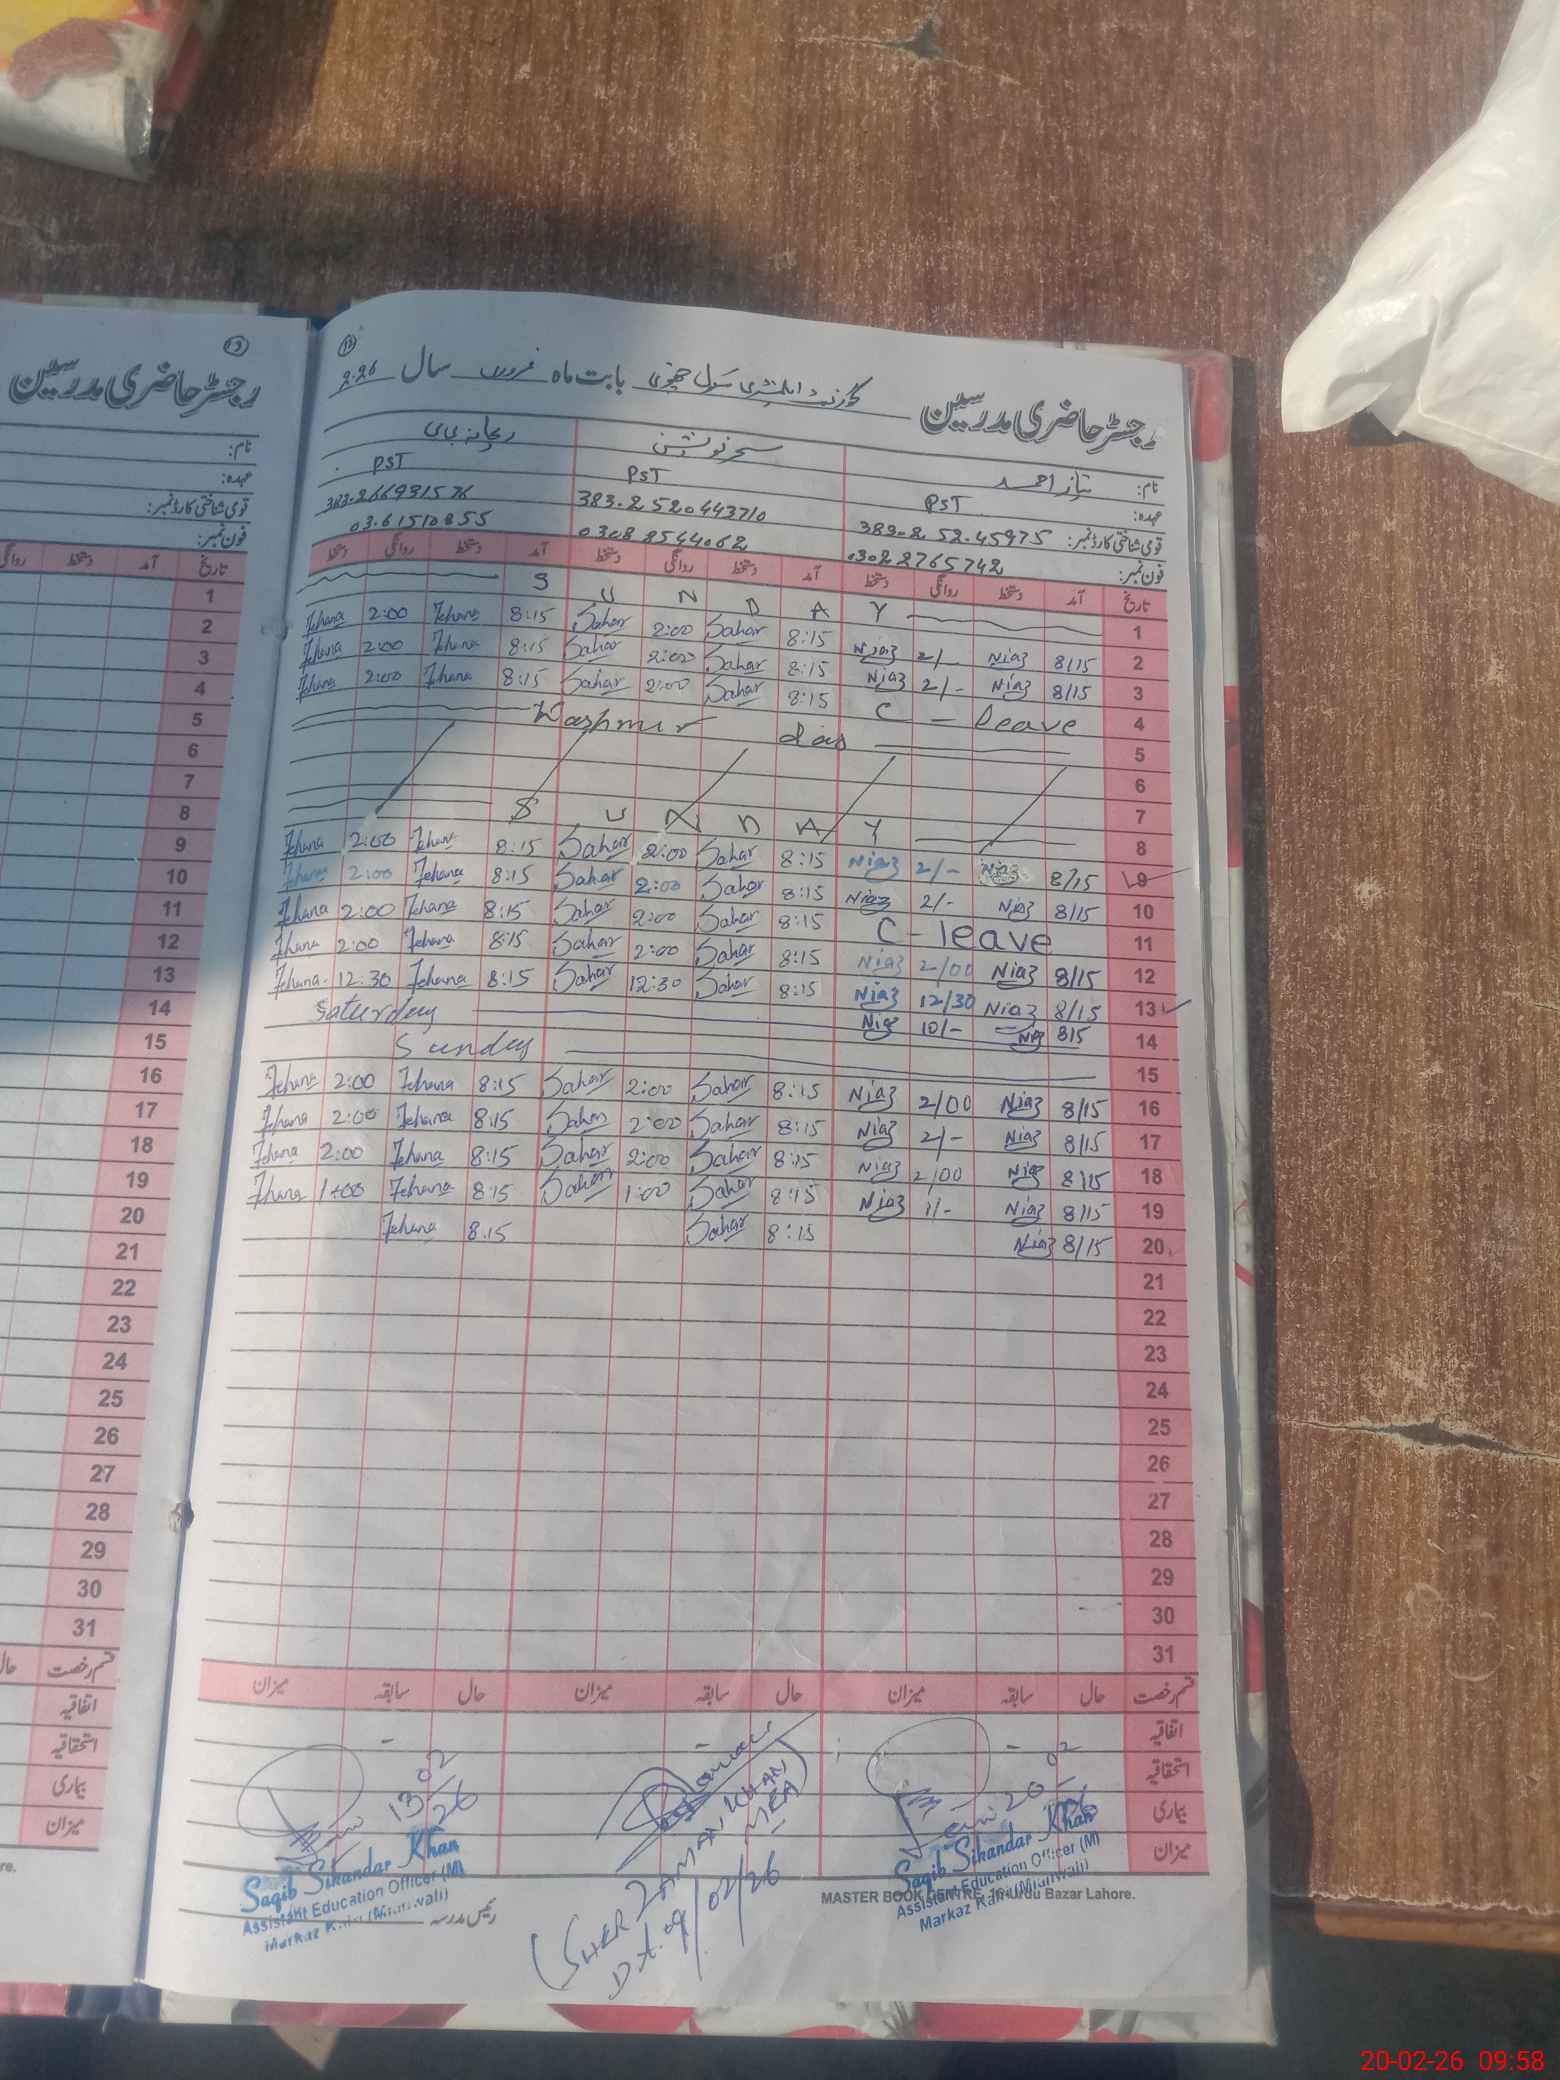 رجسٹر حاضری مدرسین گورنمنٹ ایلیمنٹری سکول بابت ماہ فروری سال 2026
نام: نیاز احمد سحر نوشین ریحانہ بی بی
عہدہ: PST PST PST
قومی شناختی کارڈ نمبر: 383.2 52.45975 383.2520443710 383.266931576
فون نمبر: 03022765742 03088544062 03.61510855
تاریخ آمد دستخط روانگی دستخط آمد دستخط روانگی دستخط آمد دستخط روانگی دستخط
1 S U N D A Y
2 8/15 Niaz 2/- Niaz 8:15 Sahar 2:00 Sahar 8:15 Jehana 2:00 Jehana
3 8/15 Niaz 2/- Niaz 8:15 Sahar 2:00 Sahar 8:15 Jehana 2:00 Jehana
4 C - leave 8:15 Sahar 2:00 Sahar 8:15 Jehana 2:00 Jehana
5 Kashmir day
6
7
8 S U N D A Y
9 8/15 Niaz 2/- Niaz 8:15 Sahar 2:00 Sahar 8:15 Jehana 2:00 Jehana
10 8/15 Niaz 2/- Niaz 8:15 Sahar 2:00 Sahar 8:15 Jehana 2:00 Jehana
11 C - leave 8:15 Sahar 2:00 Sahar 8:15 Jehana 2:00 Jehana
12 8/15 Niaz 2/00 Niaz 8:15 Sahar 2:00 Sahar 8:15 Jehana 2:00 Jehana
13 8/15 Niaz 12/30 Niaz 8:15 Sahar 12:30 Sahar 8:15 Jehana 12:30 Jehana
14 815 Niaz 10/- Niaz Saturday
15 Sunday
16 8/15 Niaz 2/00 Niaz 8:15 Sahar 2:00 Sahar 8:15 Jehana 2:00 Jehana
17 8/15 Niaz 2/- Niaz 8:15 Sahar 2:00 Sahar 8:15 Jehana 2:00 Jehana
18 8/15 Niaz 2/00 Niaz 8:15 Sahar 2:00 Sahar 8:15 Jehana 2:00 Jehana
19 8/15 Niaz 1/- Niaz 8:15 Sahar 1:00 Sahar 8:15 Jehana 1:00 Jehana
20 8/15 Niaz 8:15 Sahar 8:15 Jehana
21
22
23
24
25
26
27
28
29
30
31
قسم رخصت حال سابقہ میزان حال سابقہ میزان حال سابقہ میزان
اتفاقیہ
استحقاقیہ
بیماری
میزان
20 02 26
Saqib Sikandar Khan
Assistant Education Officer (M)
(SHER ZAMAN KHAN
MEA)
Dt. 09/02/26
13 02 26
Saqib Sikandar Khan
Assistant Education Officer (M)
رئیس مدرسہ
MASTER BOOK CENTRE Urdu Bazar Lahore.
رجسٹر حاضری مدرسین
نام:
عہدہ:
قومی شناختی کارڈ نمبر:
فون نمبر:
تاریخ آمد دستخط روانگی
1
2
3
4
5
6
7
8
9
10
11
12
13
14
15
16
17
18
19
20
21
22
23
24
25
26
27
28
29
30
31
قسم رخصت حال
اتفاقیہ
استحقاقیہ
بیماری
میزان
re.
20-02-26 09:58